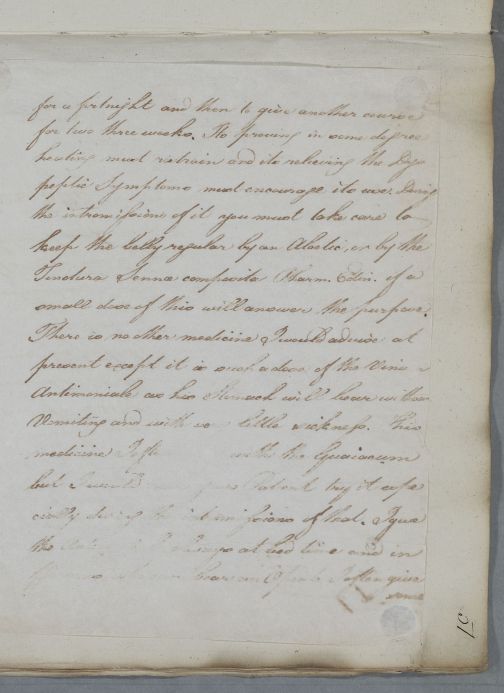 for a fortnight and then to give another course
for two three weeks. Its proving in some degree
heating must restrain and its relieving the Dys
peptic Symptoms must encourage its use. During
the intromission of it you must take care to
keep the belly regular by an Aloetic, or by the
Tinctura Sennæ composita Pharm. Edin. of a
small dose of this will answer the purpose.
There is no other medicine I would advise at
present except it is such a dose of the Vinu
Antimoniale as his Stomach will bear without
Vomiting and with very little sickness. This
medicine I often with the Guaiacum
but I would Patient try it espe
cially during the intermissions of that. I give
the always at bed time and in
bear it I often give
some
51